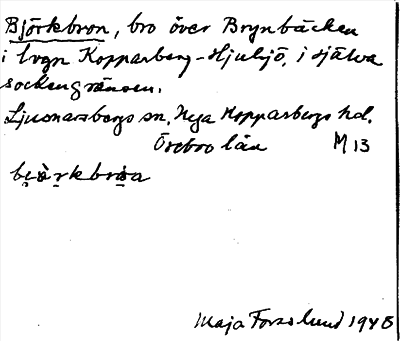 Björkbron, bro över Brynbäcken
i vägn Kopparberg-Hjulsjö, i själva
sockengränsen.
Ljusnarsbergs sn. Nya Kopparbergs hd.
Örebro län M 13
Maja Forsslund 1948